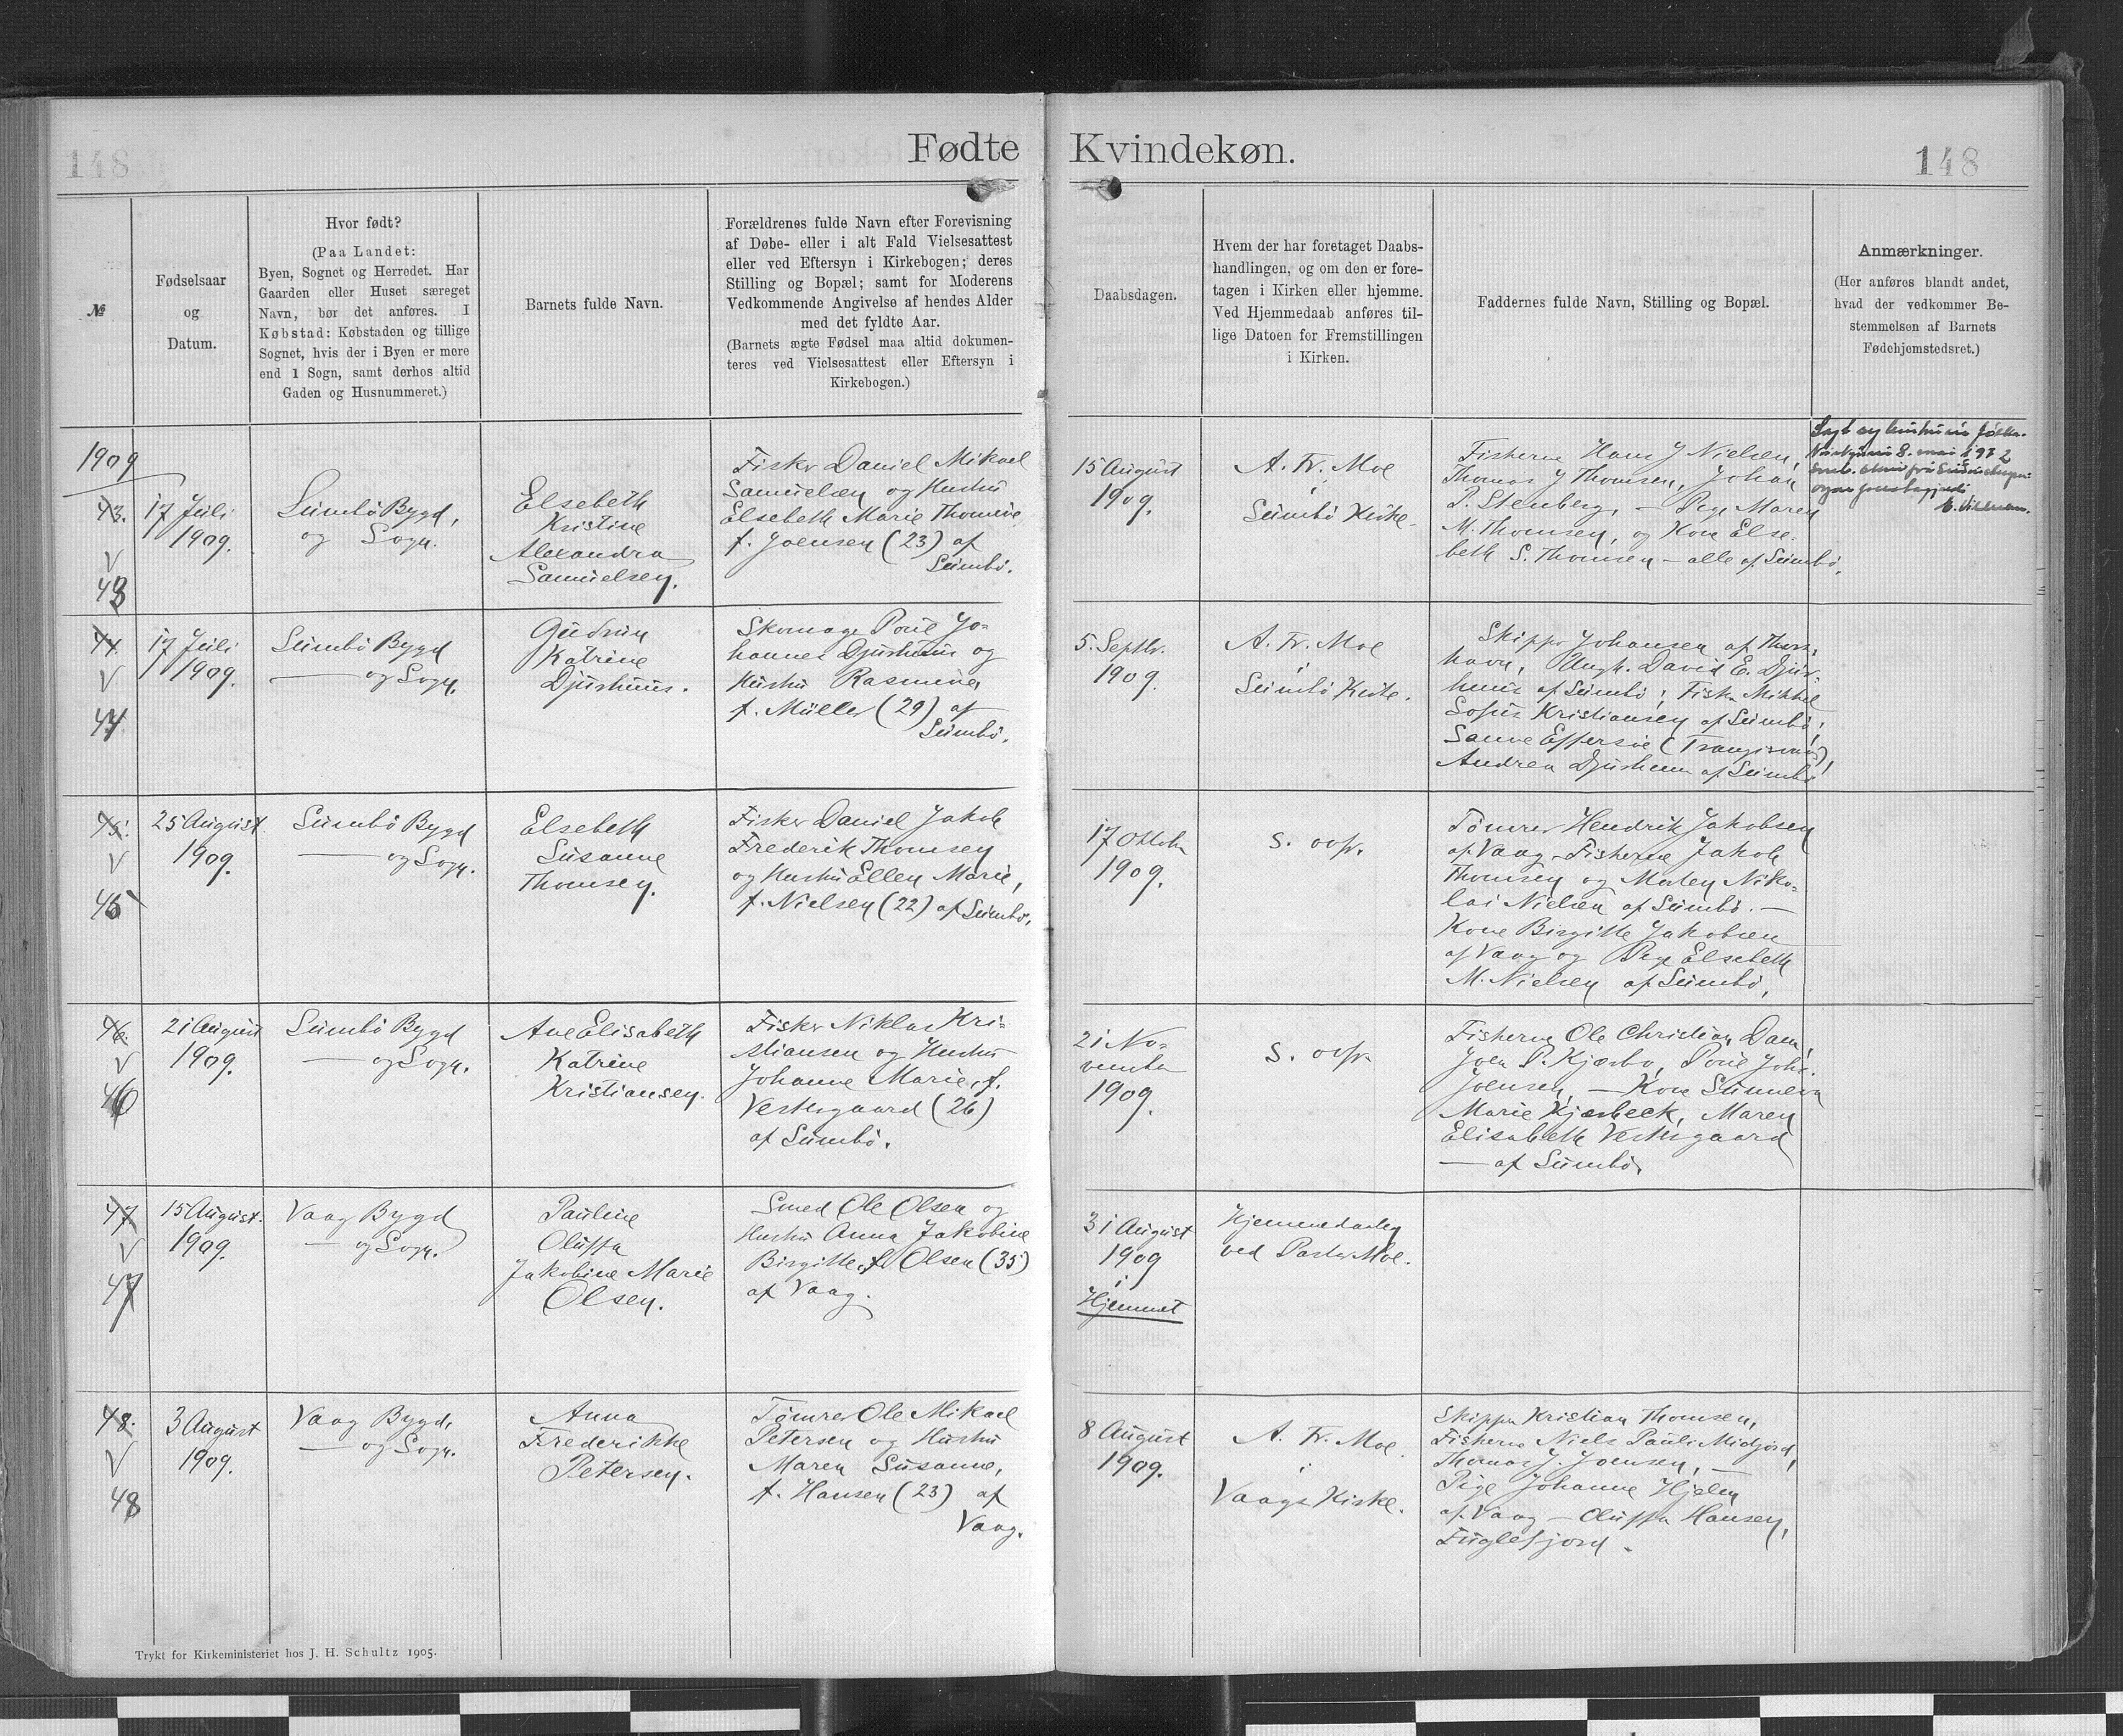 148
Fødte
Kvindekøn.
148
№
Fødselsaar
og
Datum.
Hvor født?
(Paa Landet:
Byen, Sognet og Herredet. Har
Gaarden eller Huset særeget
Navn, bør det anføres. I
Købstad: Købstaden og tillige
Sognet, hvis der i Byen er mere
end 1 Sogn, samt derhos altid
Gaden og Husnummeret.)
Barnets fulde Navn.
Forældrenes fulde Navn efter Forevisning
af Døbe- eller i alt Fald Vielsesattest
eller ved Eftersyn i Kirkebogen; deres
Stilling og Bopæl; samt for Moderens
Vedkommende Angivelse af hendes Alder
med det fyldte Aar.
(Barnets ægte Fødsel maa altid dokumen-
teres ved Vielsesattest eller Eftersyn i
Kirkebogen.)
Daabsdagen.
Hvem der har foretaget Daabs-
handlingen, og om den er fore-
tagen i Kirken eller hjemme.
Ved Hjemmedaab anføres til-
lige Datoen for Fremstillingen
i Kirken.
Faddernes fulde Navn, Stilling og Bopæl.
Anmærkninger.
(Her anføres blandt andet,
hvad der vedkommer Be-
stemmelsen af Barnets
Fødehjemstedsret.)
1909
43.
V
43
17 Juli
1909.
Sumbö Bygd,
og Sogn.
Elsebeth
Kristine
Alexandra
Samuelsen.
Fisker Daniel Mikael
Samuelsen og Hustru
Elsebeth Marie Thomine
f. Joensen (23) af
Sumbö.
15 August
1909.
A. Fr. Moe
i
Sumbö Kirke.
Fiskerne Hans J Nielsen,
Thomas J Thomsen, Johan
P. Stenberg, — Pige Maren
M. Thomsen, og Kone Else-
beth S. Thomsen — alle af Sumbö.
8. mai 1972
44.
V
44
17 Juli
1909.
Sumbö Bygd
— og Sogn.
Gudrun
Katrine
Djurhuus.
Skomager Poul Jo-
hannes Djurhuus og
Hustru Rasmine
f. Müller (29) af
Sumbö.
5. Septbr.
1909.
A. Fr. Moe
i
Sumbö Kirke.
Skipper Johansen af Thors-
havn, Ungk. David E. Djur-
huus af Sumbö; Fisker Mikkel
Sofus Kristiansen af Sumbö;
Sanne Effersöe (Trangisvaag),
Andrea Djurhuus af Sumbö
45.
V
45
25 August
1909.
Sumbö Bygd
— og Sogn.
Elsebeth
Susanne
Thomsen.
Fisker Daniel Jakob
Frederik Thomsen
og Hustru Ellen Marie,
f. Nielsen (22) af Sumbö.
17 Oktober
1909.
s. ovfr.
Tömrer Hendrik Jakobsen
af Vaag. Fiskerne Jakob
Thomsen og Morten Niko-
lai Nielsen af Sumbö. —
Kone Birgitte Jakobsen
af Vaag og Pige Elsebeth
M. Nielsen af Sumbö.
46.
V
46
21 August
1909.
Sumbö Bygd
— og Sogn.
Ane Elisabeth
Katrine
Kristiansen.
Fisker Niklas Kri-
stiansen og Hustru
Johanne Marie, f.
Vestergaard (26)
af Sumbö.
21 No-
vember
1909.
s. ovfr.
Fiskerne Ole Christian Dam,
Joen P. Kjærbo, Poul Joh.
Joensen, — Kone Sunneva
Marie Kjærbeck, Maren
Elisabeth Vestergaard
— af Sumbö.
47
V
47
15 August.
1909.
Vaag Bygd
— og Sogn.
Pauline
Oluffa
Jakobine Marie
Olsen.
Smed Ole Olsen og
Hustru Anna Jakobine
Birgitte, f. Olsen (35)
af Vaag.
31 August
1909
i
Hjemmet
Hjemmedaab
ved Pastor Moe.
48.
V
48
3 August
1909.
Vaag Bygd,
— og Sogn.
Anna
Frederikke
Petersen.
Tömrer Ole Mikael
Petersen og Hustru
Maren Susanne,
f. Hansen (23) af
Vaag.
8 August
1909.
A. Fr. Moe.
i
Vaags Kirke.
Skipper Kristian Thomsen,
Fiskerne Niels Pauli Midjord,
Thomas J. Joensen, —
Pige Johanne Hjelm
af Vaag — Oluffa Hansen,
Fuglefjord.
Trykt for Kirkeministeriet hos J. H. Schultz 1905.